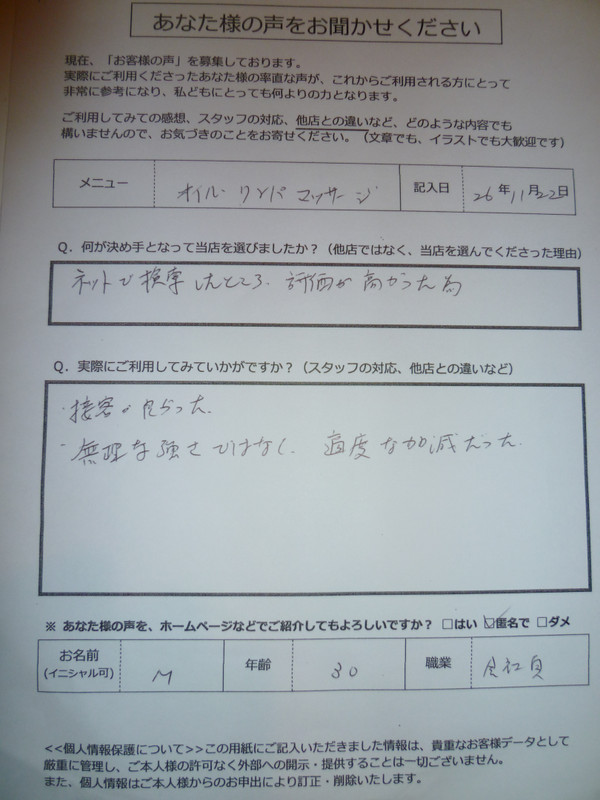 あなた様の声をお聞かせください
現在、「お客様の声」を募集しております。
実際にご利用くださったあなた様の率直な声が、これからご利用される方にとって
非常に参考になり、私どもにとっても何よりの力となります。
ご利用してみての感想、スタッフの対応、他店との違いなど、どのような内容でも
構いませんので、お気づきのことをお寄せください。（文章でも、イラストでも大歓迎です）
メニュー オイル・リンパマッサージ 記入日 26年11月22日
Q．何が決め手となって当店を選びましたか？（他店ではなく、当店を選んでくださった理由）
ネットで検索したところ、評価が高かった為
Q．実際にご利用してみていかがですか？（スタッフの対応、他店との違いなど）
・接客が良かった。
・無理な強さではなく、適度な加減だった。
※ あなた様の声を、ホームページなどでご紹介してもよろしいですか？ □はい ☑匿名で □ダメ
お名前 M 年齢 30 職業 会社員
(イニシャル可)
<<個人情報保護について>>この用紙にご記入いただきました情報は、貴重なお客様データとして
厳重に管理し、ご本人様の許可なく外部への開示・提供することは一切ございません。
また、個人情報はご本人様からのお申出により訂正・削除いたします。